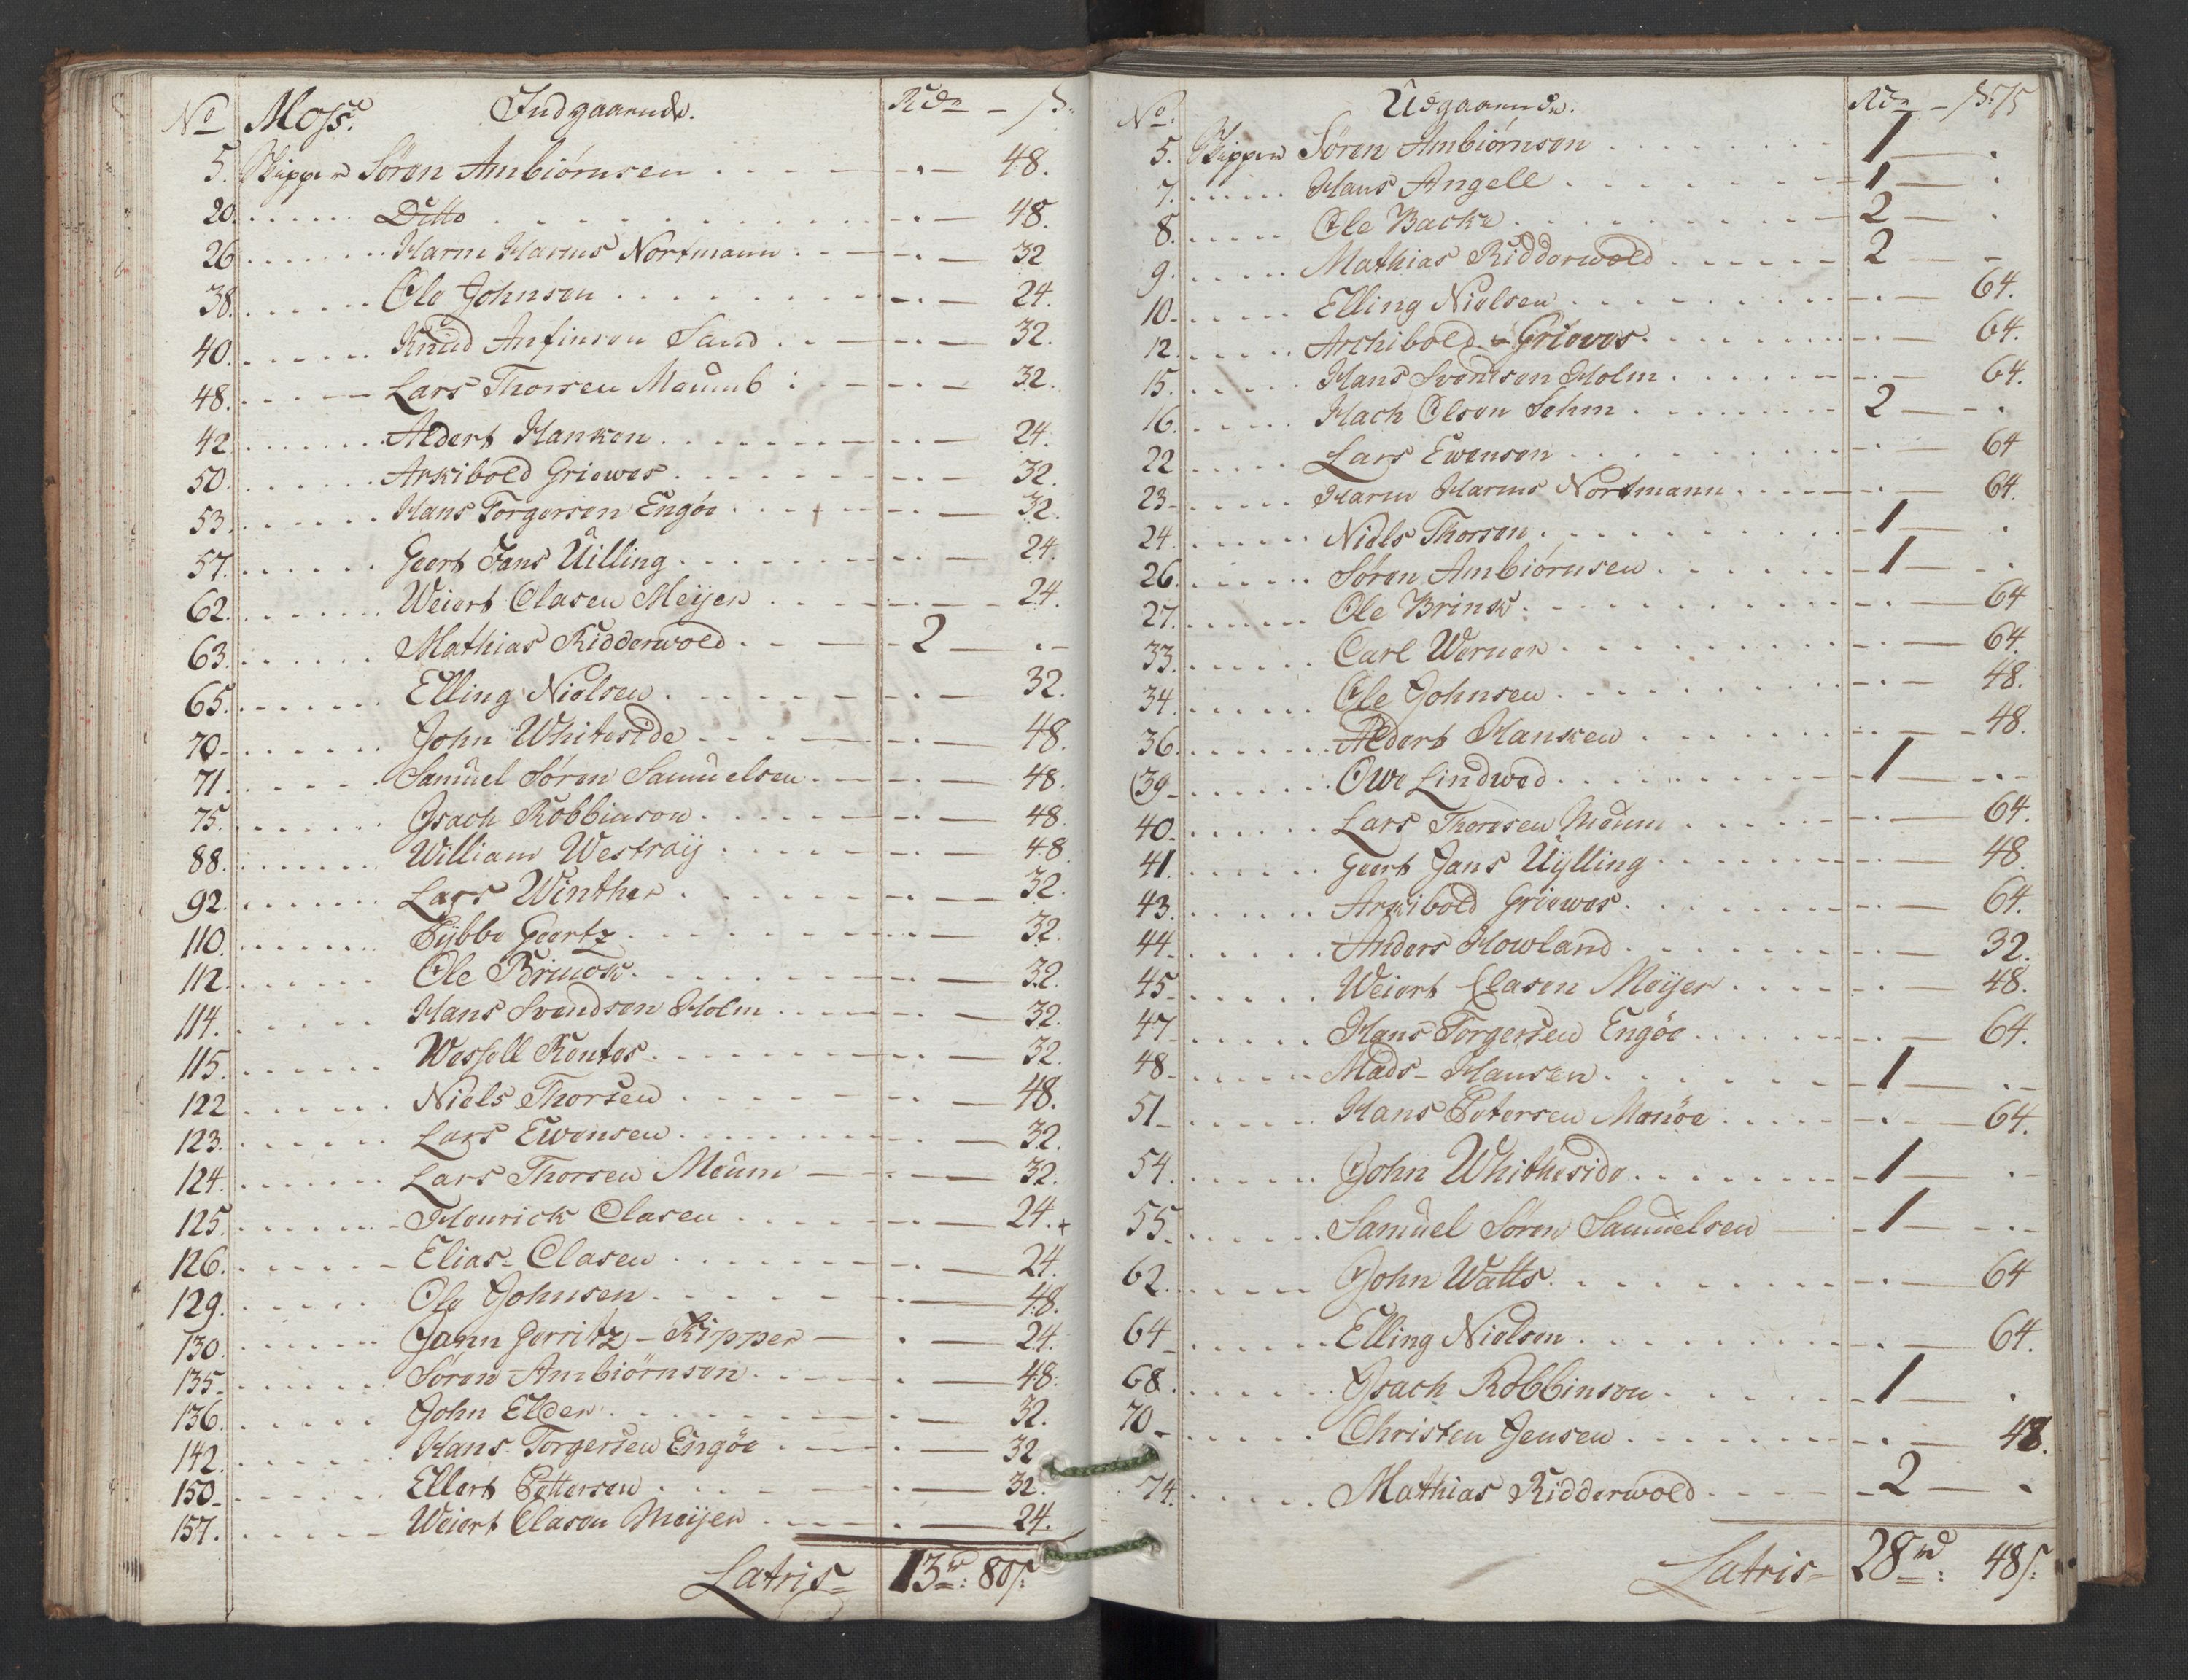 No Moss. Indgaaende. Rdr – s:
5. Skipper Søren Ambiørnsen . – 48.
20. Ditto . – 48.
26 Harm Harms Nortmann . – 32
38. Ole Johnsen . – 24.
40. Knud Anfinsen Sand . – 32.
48. Lars Thorsen Maumb : . – 32.
42 Aldert Hanken . – 24.
50. Arkibold Griewes . – 32.
53. Hans Torgersen Engøe . – 32.
57. Geert Jans Uilling . – 24.
62. Weiert Clasen Meijer . – 24.
63. Mathias Ridderwold 2 – . –
65. Elling Nielsen . – 32.
70 – John Whiteside . – 48.
71. Samuel Søren Samuelsen . – 48.
75. Isach Robbinson . – 48.
88. William Westraij . – 48
92. Lars Winther . – 32.
110. Eybbe Geertz . – 32.
112. Ole Brinck . – 32.
114. Hans Svendsen Holm . – 32.
115. Wessell Rentes . – 32.
122 Niels Thorsen . – 48.
123. Lars Ewensen . – 32.
124. Lars Thorsen Moum . – 32.
125 Henrick Clasen . – 24. +
126. Elias Clasen . – 24.
129. Ole Johnsen . – 48.
130. Jann Gerritz – Kipper . – 24.
135. Søren Ambiørnsen . – 48.
136. John Elder . – 32.
142. Hans Torgersen Engøe . – 32
150 – Ellert Pettersen . – 32.
157. Weiert Clasen Meijer . – 24.
Latris = 13 rd: 80 s:
No. Udgaaende. Rdr – s: 75
5. Skipper Søren Ambiørnsen 1 – .
7. Hans Angell 1 – .
8. Ole Backe 2 – .
9. Mathias Ridderwold 2 – –
10 – Elling Nielsen . – 64.
12. Archibold Grieves . – 64.
15. Hans Svendsen Holm . – 64.
16. Hach Olsen Sehm 2 – .
22 Lars Ewensen . – 64
23 – Harm Harms Nortmann . – 64.
24. Niels Thorsen 1 – .
26. Søren Ambiørnsen 1 – .
27. Ole Brinck . – 64
33. Carl Werner . – 64.
34. Ole Johnsen . – 48.
36. Aldert Hansken . – 48.
39 – Owe Lindwed 1 – . –
40. Lars Thoresen Moum . – 64.
41. Geert Jans Uylling . – 48.
43. Arkibold Griewes . – 64.
44 – Anders Howland . – 32.
45 – Weiert Clasen Meijer . – 48.
47 – Hans Torgersen Engøe . – 64.
48 – Mads – Hansen 1 – . –
51 – Hans Petersen Monøe . – 64.
54. John Whitheside 1 – . –
55 – Samuel Søren Samuelsen 1 – . –
62. John Watts . – 64
64 – Elling Nielsen . – 64.
68. Isach Robbinson 1 – .
70 – Christen Jensen . – 48.
74. Mathias Ridderwold 2 – .
Latris = 28 rd: 48 s: